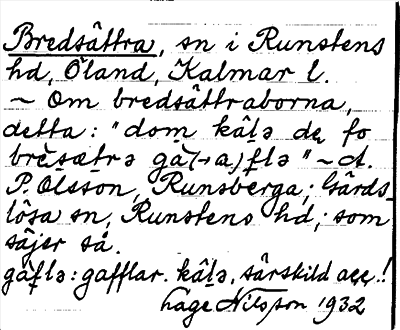 Bredsättra, sn i Runstens
hd, Öland, Kalmar l.
~ Om bredsättraborna,
detta: "dom kâl̠ə de̠ fo
brèsætrə gà(→a)f̠lə" ~ d.
P. Olsson, Runsberga; Gärds-
lösa sn, Runstens hd; som
säjer så.
gàf̠lə: gafflar. kâl̠ə, särskild acc.!!
Åage Nilsson 1932